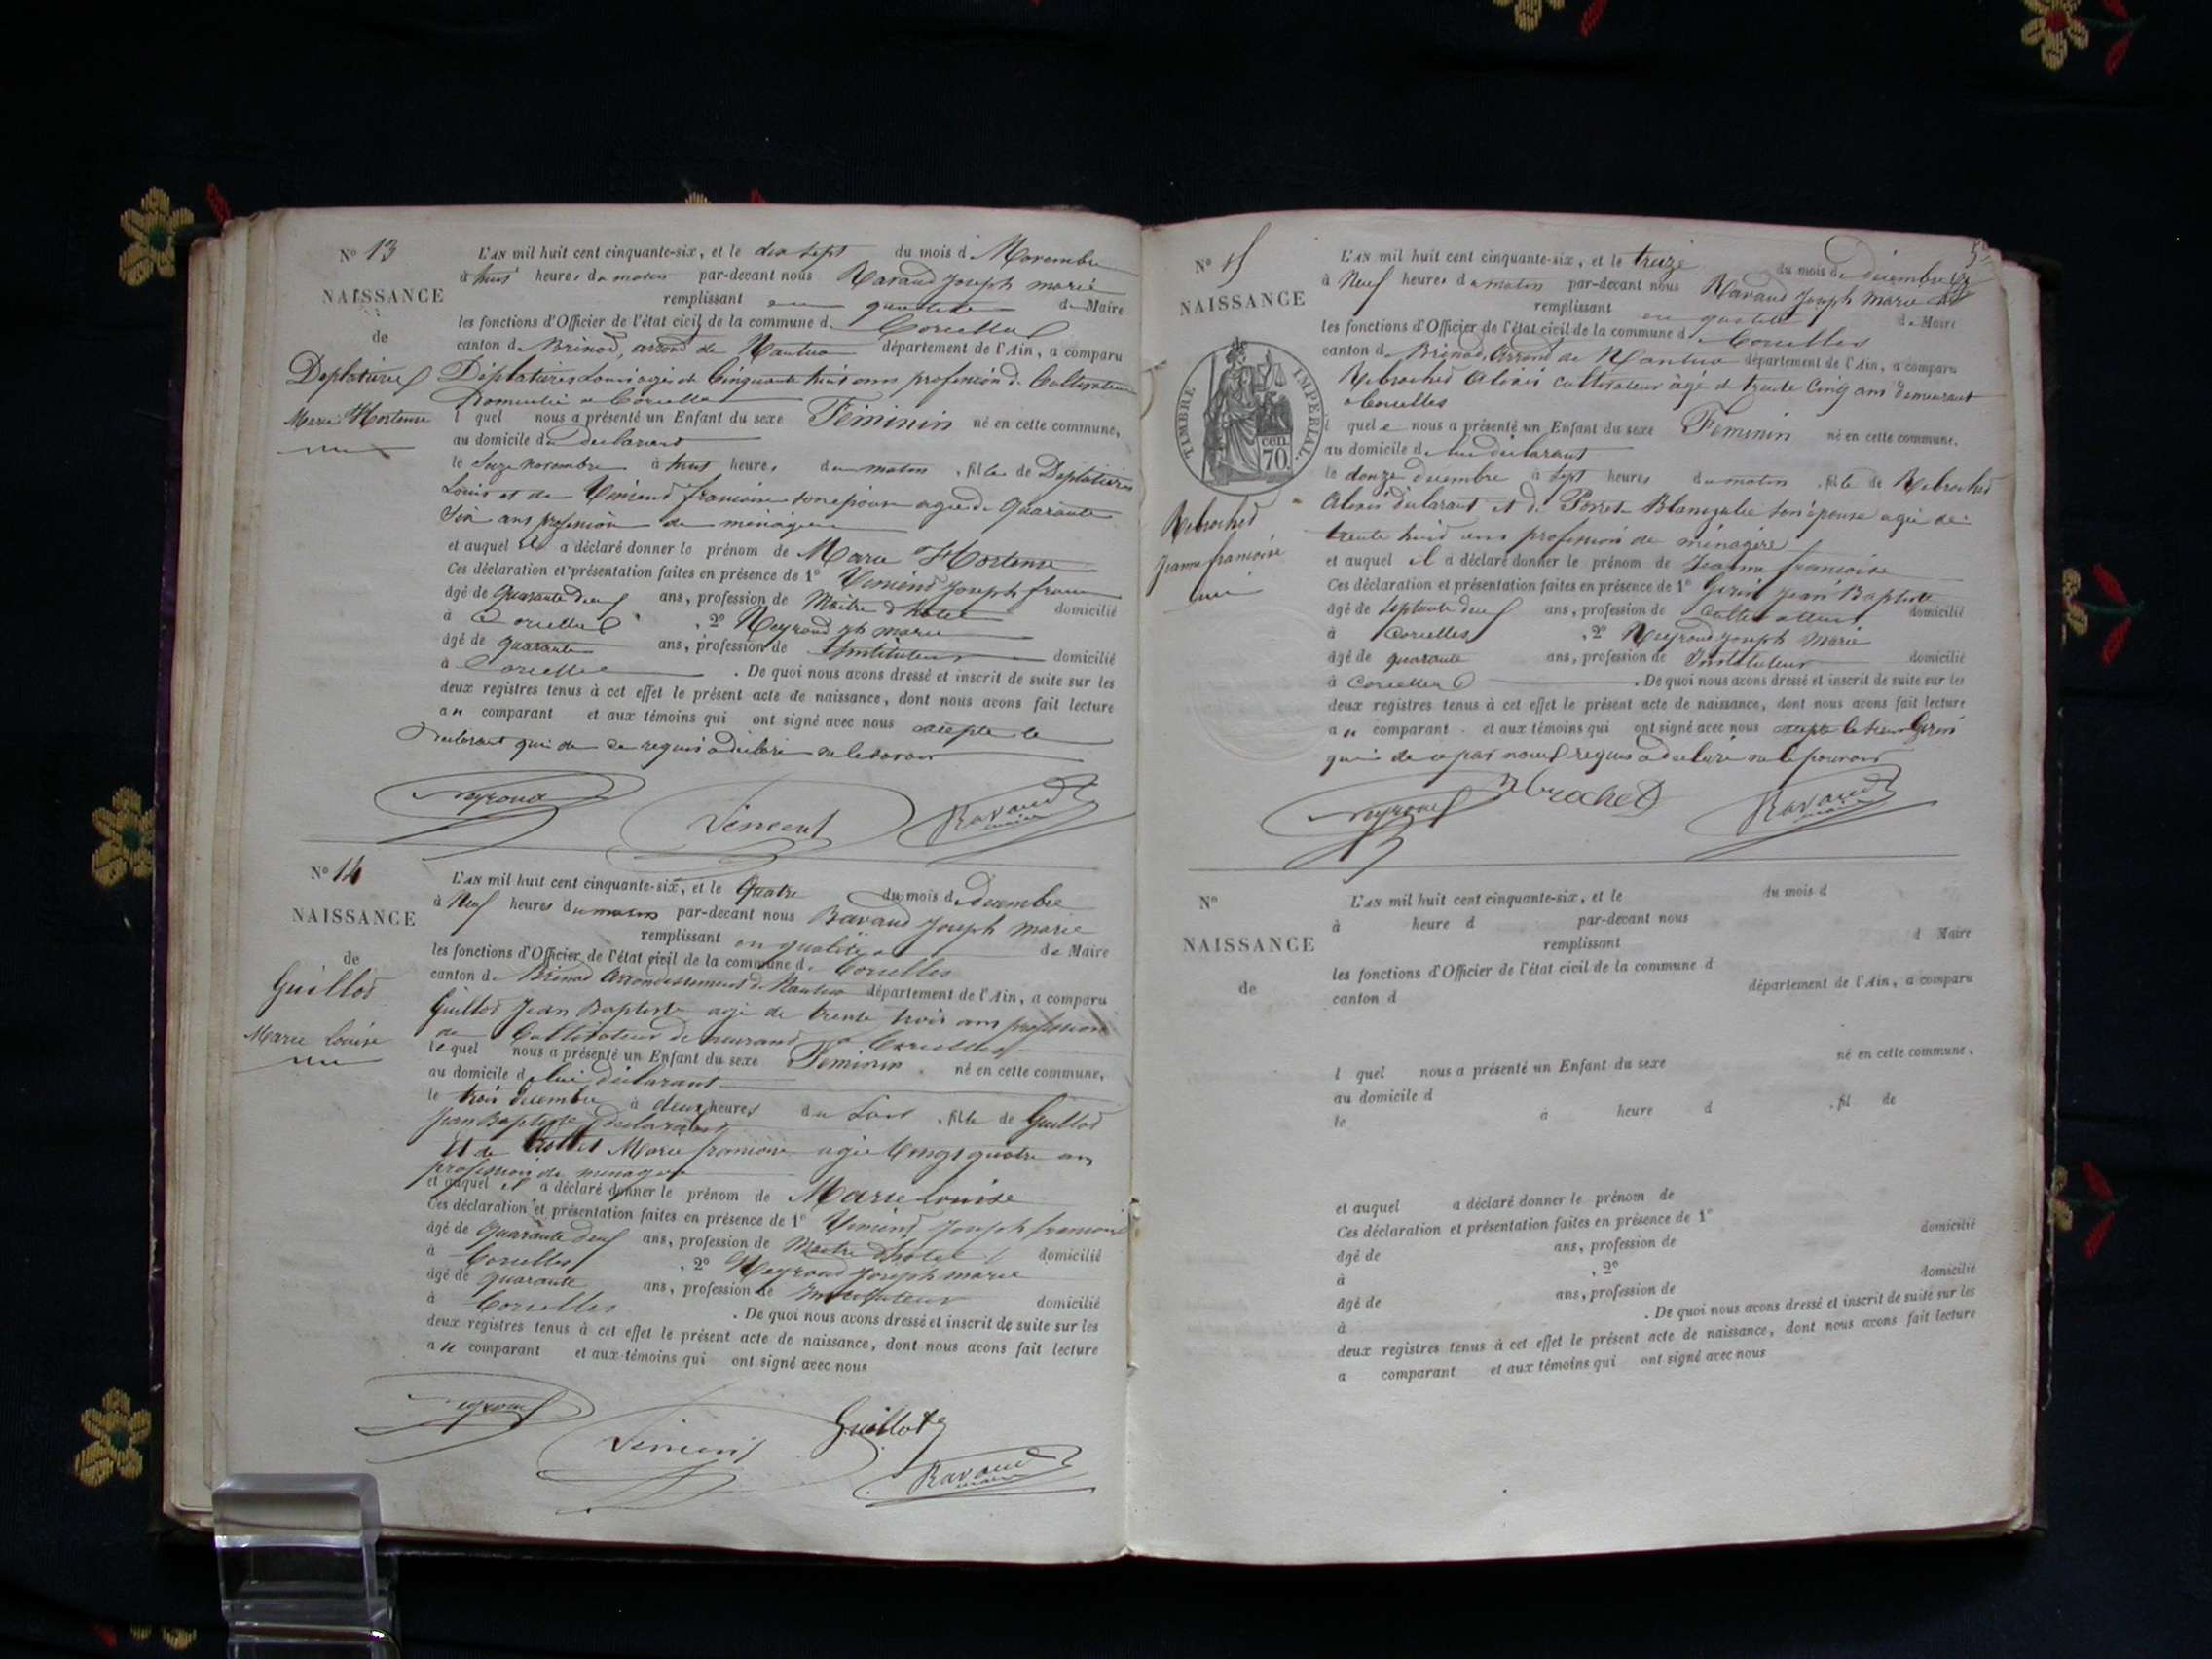 N° 13
NAISSANCE
de
Deplatures
Marie Hortense
L'AN mil huit cent cinquante-six, et le dix sept du mois de Novembre
à huit heures du matin par-devant nous Ravaud Joseph marie
remplissant en qualité de Maire
les fonctions d'Officier de l'état civil de la commune de Corcelles
canton de Brénod, arrond de Nantua département de l'Ain, a comparu
Déplatures Louis agé de Cinquante huit ans profession de Cultivateur
Domicilié a Corcelles
l quel nous a présenté un Enfant du sexe Féminin né en cette commune,
au domicile du declarant
le Seize novembre à huit heures du matin, fille de Deplatures
Louis et de Vincend francoise son epouse agée de quarante
Six ans profession de ménagere
et auquel il a déclaré donner le prénom de Marie Hortense
Ces déclaration et présentation faites en présence de 1° Vincend Joseph
âgé de quarante neuf ans, profession de Maître d'hotel domicilié
à Corcelles, 2° Neyroud Jh marie
âgé de quarante ans, profession de Instituteur domicilié
à Corcelles. De quoi nous avons dressé et inscrit de suite sur les
deux registres tenus à cet effet le présent acte de naissance, dont nous avons fait lecture
au comparant et aux témoins qui ont signé avec nous excepté le
declarant qui de ce requis a declare ne le savoir
Neyroud Vincent Ravaud
maire
N° 14
NAISSANCE
de
Guillod
Marie Louise
L'AN mil huit cent cinquante-six, et le Quatre du mois de Decembre
à Neuf heures du matin par-devant nous Ravaud Joseph marie
remplissant en qualité de Maire
les fonctions d'Officier de l'état civil de la commune de Corcelles
canton de Brénod Arrondissement de Nantua département de l'Ain, a comparu
Guillod Jean Baptiste agé de trente trois ans profession
de Cultivateur demeurand a Corcelles
lequel nous a présenté un Enfant du sexe Féminin né en cette commune,
au domicile de lui déclarant
le trois decembre à deux heures du Soir, fille de Guillod
Jean Baptiste declarant
Et de Marie francoise agée Vingt quatre ans
profession de menagere
et auquel il a déclaré donner le prénom de Marie Louise
Ces déclaration et présentation faites en présence de 1° Vincend Joseph francois
âgé de quarante neuf ans, profession de Maitre d'hotel domicilié
à Corcelles, 2° Neyroud Joseph marie
âgé de quarante ans, profession de Instituteur domicilié
à Corcelles. De quoi nous avons dressé et inscrit de suite sur les
deux registres tenus à cet effet le présent acte de naissance, dont nous avons fait lecture
au comparant et aux témoins qui ont signé avec nous
Neyroud Vincent Guillot Ravaud
maire
N° 15
NAISSANCE
TIMBRE IMPÉRIAL.
cen.
70
Rebroched
Jeanne francoise
L'AN mil huit cent cinquante-six, et le treize du mois de décembre
à Neuf heures du matin par-devant nous Ravaud Joseph Marie
remplissant en qualité de Maire
les fonctions d'Officier de l'état civil de la commune de Corcelles
canton de Brénod, Arrond de Nantua département de l'Ain, a comparu
Rebroched Alexis cultivateur âgé de trente Cinq ans demeurant
a Corcelles
l quel e nous a présenté un Enfant du sexe Féminin né en cette commune.
au domicile de lui declarant
le douze decembre à Sept heures du matin, fille de Rebroched
Alexis declarant et de son epouse agée de
trente huid ans profession de ménagere
et auquel il a déclaré donner le prénom de Jeanne francoise
Ces déclaration et présentation faites en présence de 1° Jean Baptiste
âgé de Septante neuf ans, profession de Cultivateur domicilié
à Corcelles, 2° Neyroud Joseph Marie
âgé de quarante ans, profession de Instituteur domicilié
à Corcelles. De quoi nous avons dressé et inscrit de suite sur les
deux registres tenus à cet effet le présent acte de naissance, dont nous avons fait lecture
au comparant et aux témoins qui ont signé avec nous excepté le sieur
qui de ce par nous requis a declaré ne le pouvoir
Neyroud Rebrochet Ravaud
maire
N°
NAISSANCE
de
L'AN mil huit cent cinquante-six, et le du mois d
à heure d par-devant nous
remplissant d Maire
les fonctions d'Officier de l'état civil de la commune d
canton d département de l'Ain, a comparu
l quel nous a présenté un Enfant du sexe né en cette commune.
au domicile d
le à heure d, fil de
et auquel a déclaré donner le prénom de
Ces déclaration et présentation faites en présence de 1°
âgé de ans, profession de domicilié
à, 2°
âgé de ans, profession de domicilié
à. De quoi nous avons dressé et inscrit de suite sur les
deux registres tenus à cet effet le présent acte de naissance, dont nous avons fait lecture
a comparant et aux témoins qui ont signé avec nous